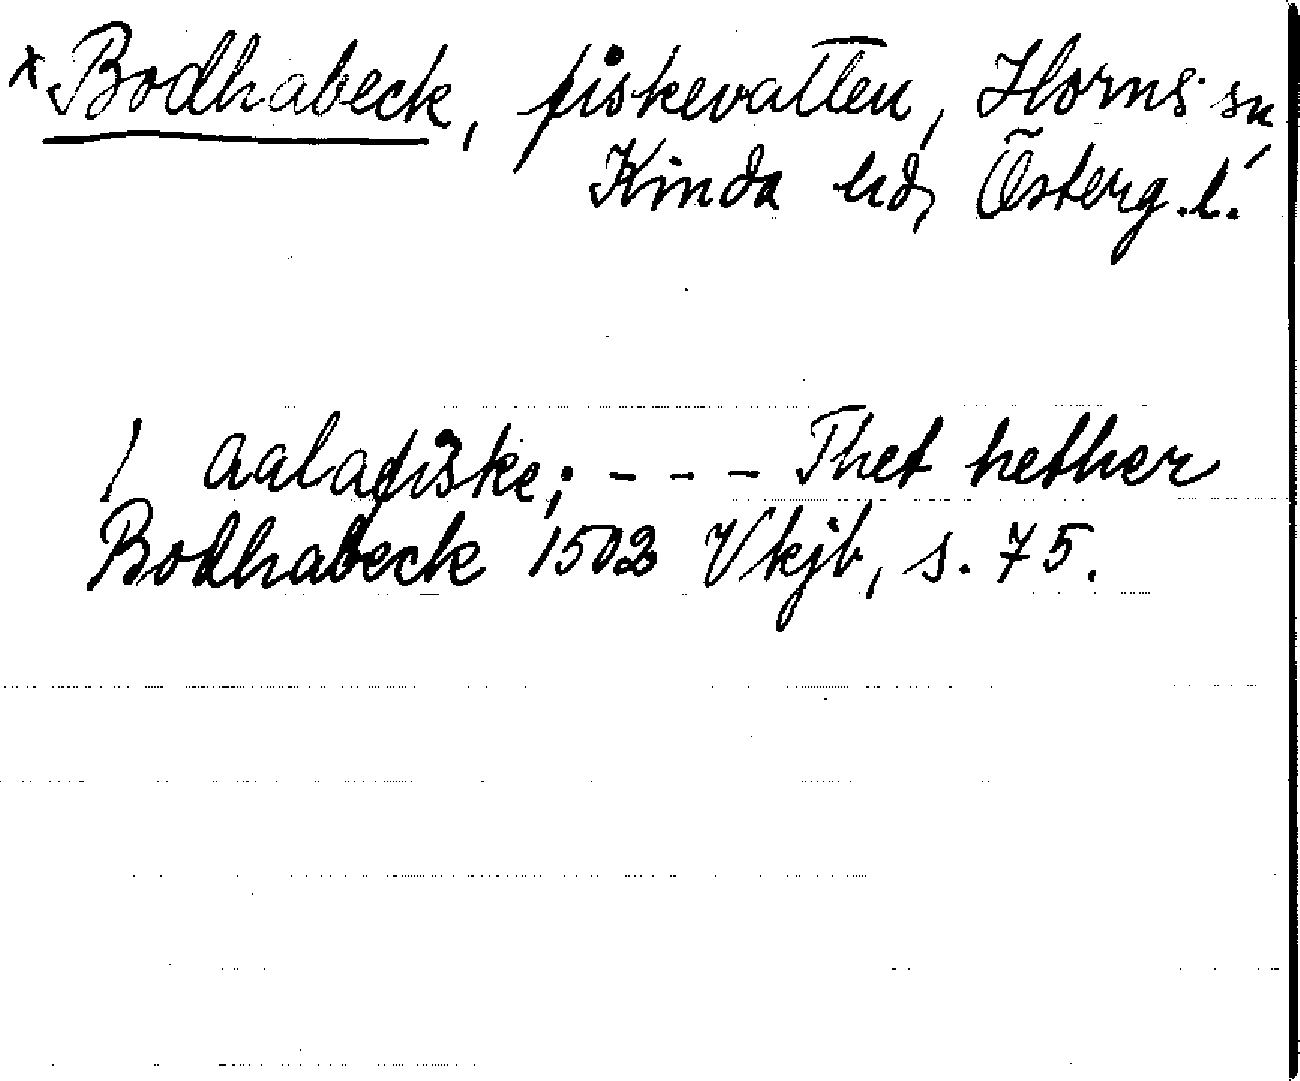 x Bodhabeck, fiskevatten, Horns sn
Kinda hd, Österg.l.
1 aalafiske; - - - Thet hether
Bodhabeck 1502 Vkjb, s. 75.